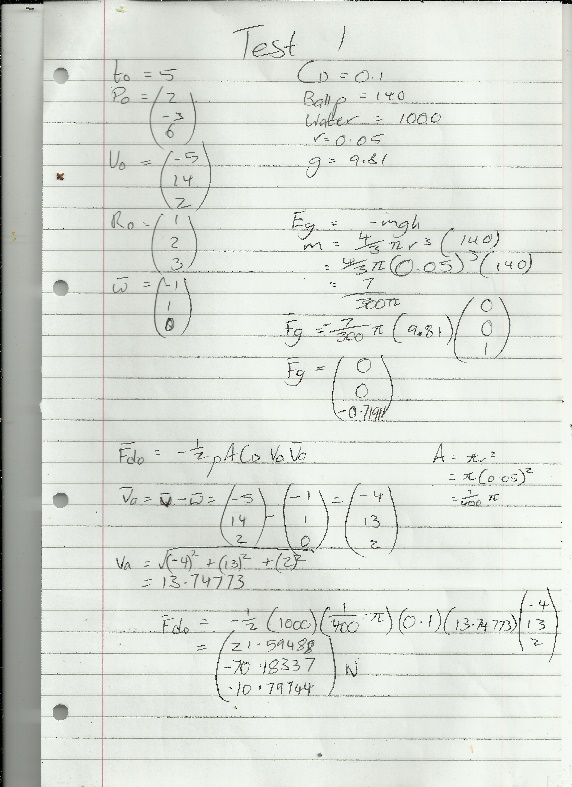 Test 1
t₀ = 5
C_D = 0.1
P₀ = (2, -3, 6)
Ball ρ = 140
Water ρ = 1000
r = 0.05
V₀ = (-5, 14, 2)
g = 9.81
R₀ = (1, 2, 3)
Fg = -mgh
m = 4/3 π r³ (140)
= 4/3 π (0.05)³ (140)
w̄ = (-1, 1, 0)
= 7/300π
F̄g = 7/300 π (9.81) (0, 0, 1)
F̄g = (0, 0, -0.7191)
F̄do = -½ ρ A C_D Va V̄a
A = πr²
= π(0.05)²
= 1/400 π
V̄a = v̄ - w̄ = (-5, 14, 2) - (-1, 1, 0) = (-4, 13, 2)
Va = √(-4)² + (13)² + (2)²
= 13.74773
F̄do = -½ (1000) (1/400 · π) (0.1) (13.74773) (-4, 13, 2)
= (21.59488, -70.18337, -10.79744) N